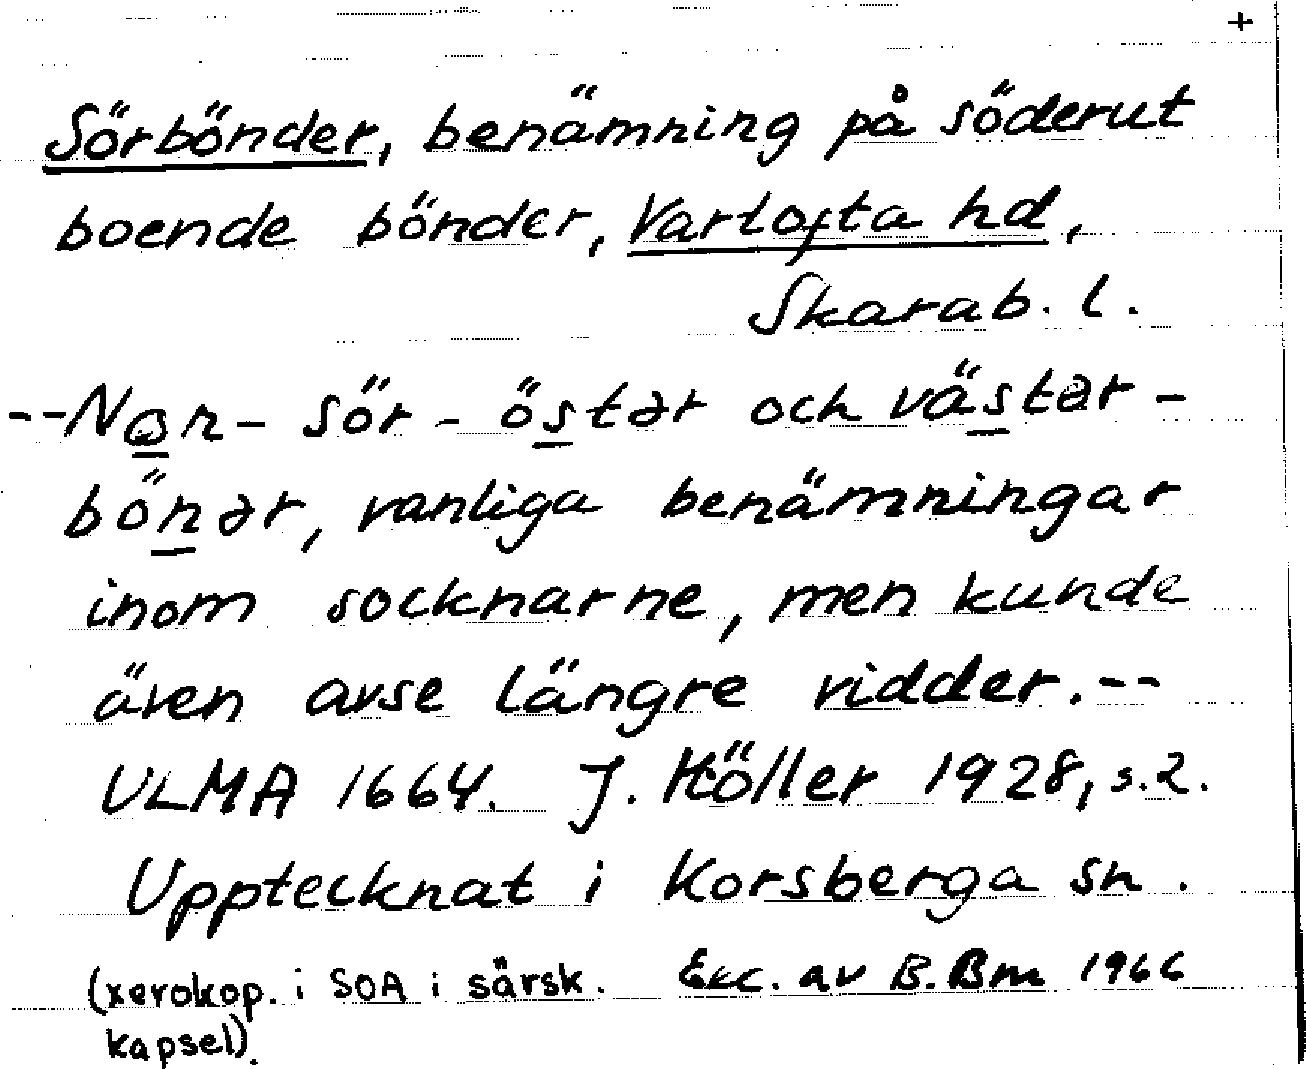 +
Sörbönder, benämning på söderut
boende bönder, Vartofta hd,
Skarab. l.
--Nɷr- sör - östər och västər -
bönər, vanliga benämningar
inom socknarne, men kunde
även avse längre vidder.--
ULMA 1664. J. Höller 1928, s.2.
Upptecknat i Korsberga sn.
(xerokop. i SOA i särsk. Exc. av B. Bm 1966
kapsel).